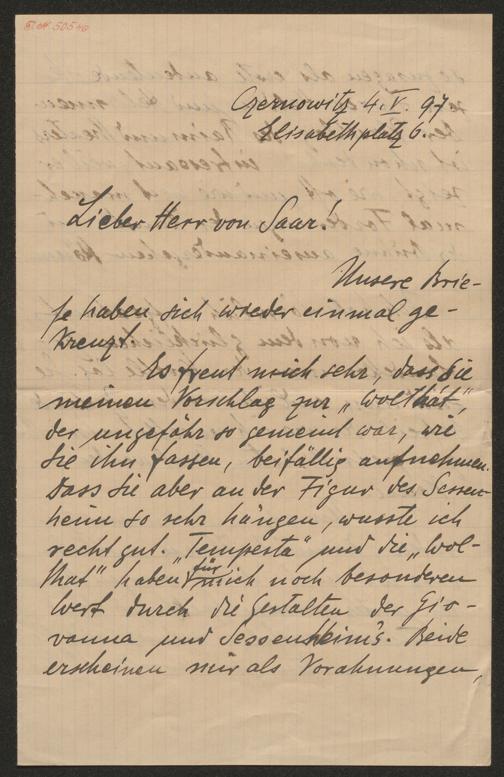 Czernowitz 4. V. 97
Elisabethplatz 6.
Lieber Herr von Saar!
Unsere Brie-
fe haben sich wieder einmal ge-
kreuzt.
Es freut mich sehr, dass Sie
meinen Vorschlag zur „Wolthat",
der ungefähr so gemeint war, wie
Sie ihn fassen, beifällig aufnehmen.
Dass Sie aber an der Figur des Sessen-
heim so sehr hängen, wusste ich
recht gut. „Tempesta" und die „Wol-
that" haben für mich noch besonderen
Wert durch die Gestalten der Gio-
vanna und Sessenheim's. Beide
erscheinen mir als Vorahnungen,